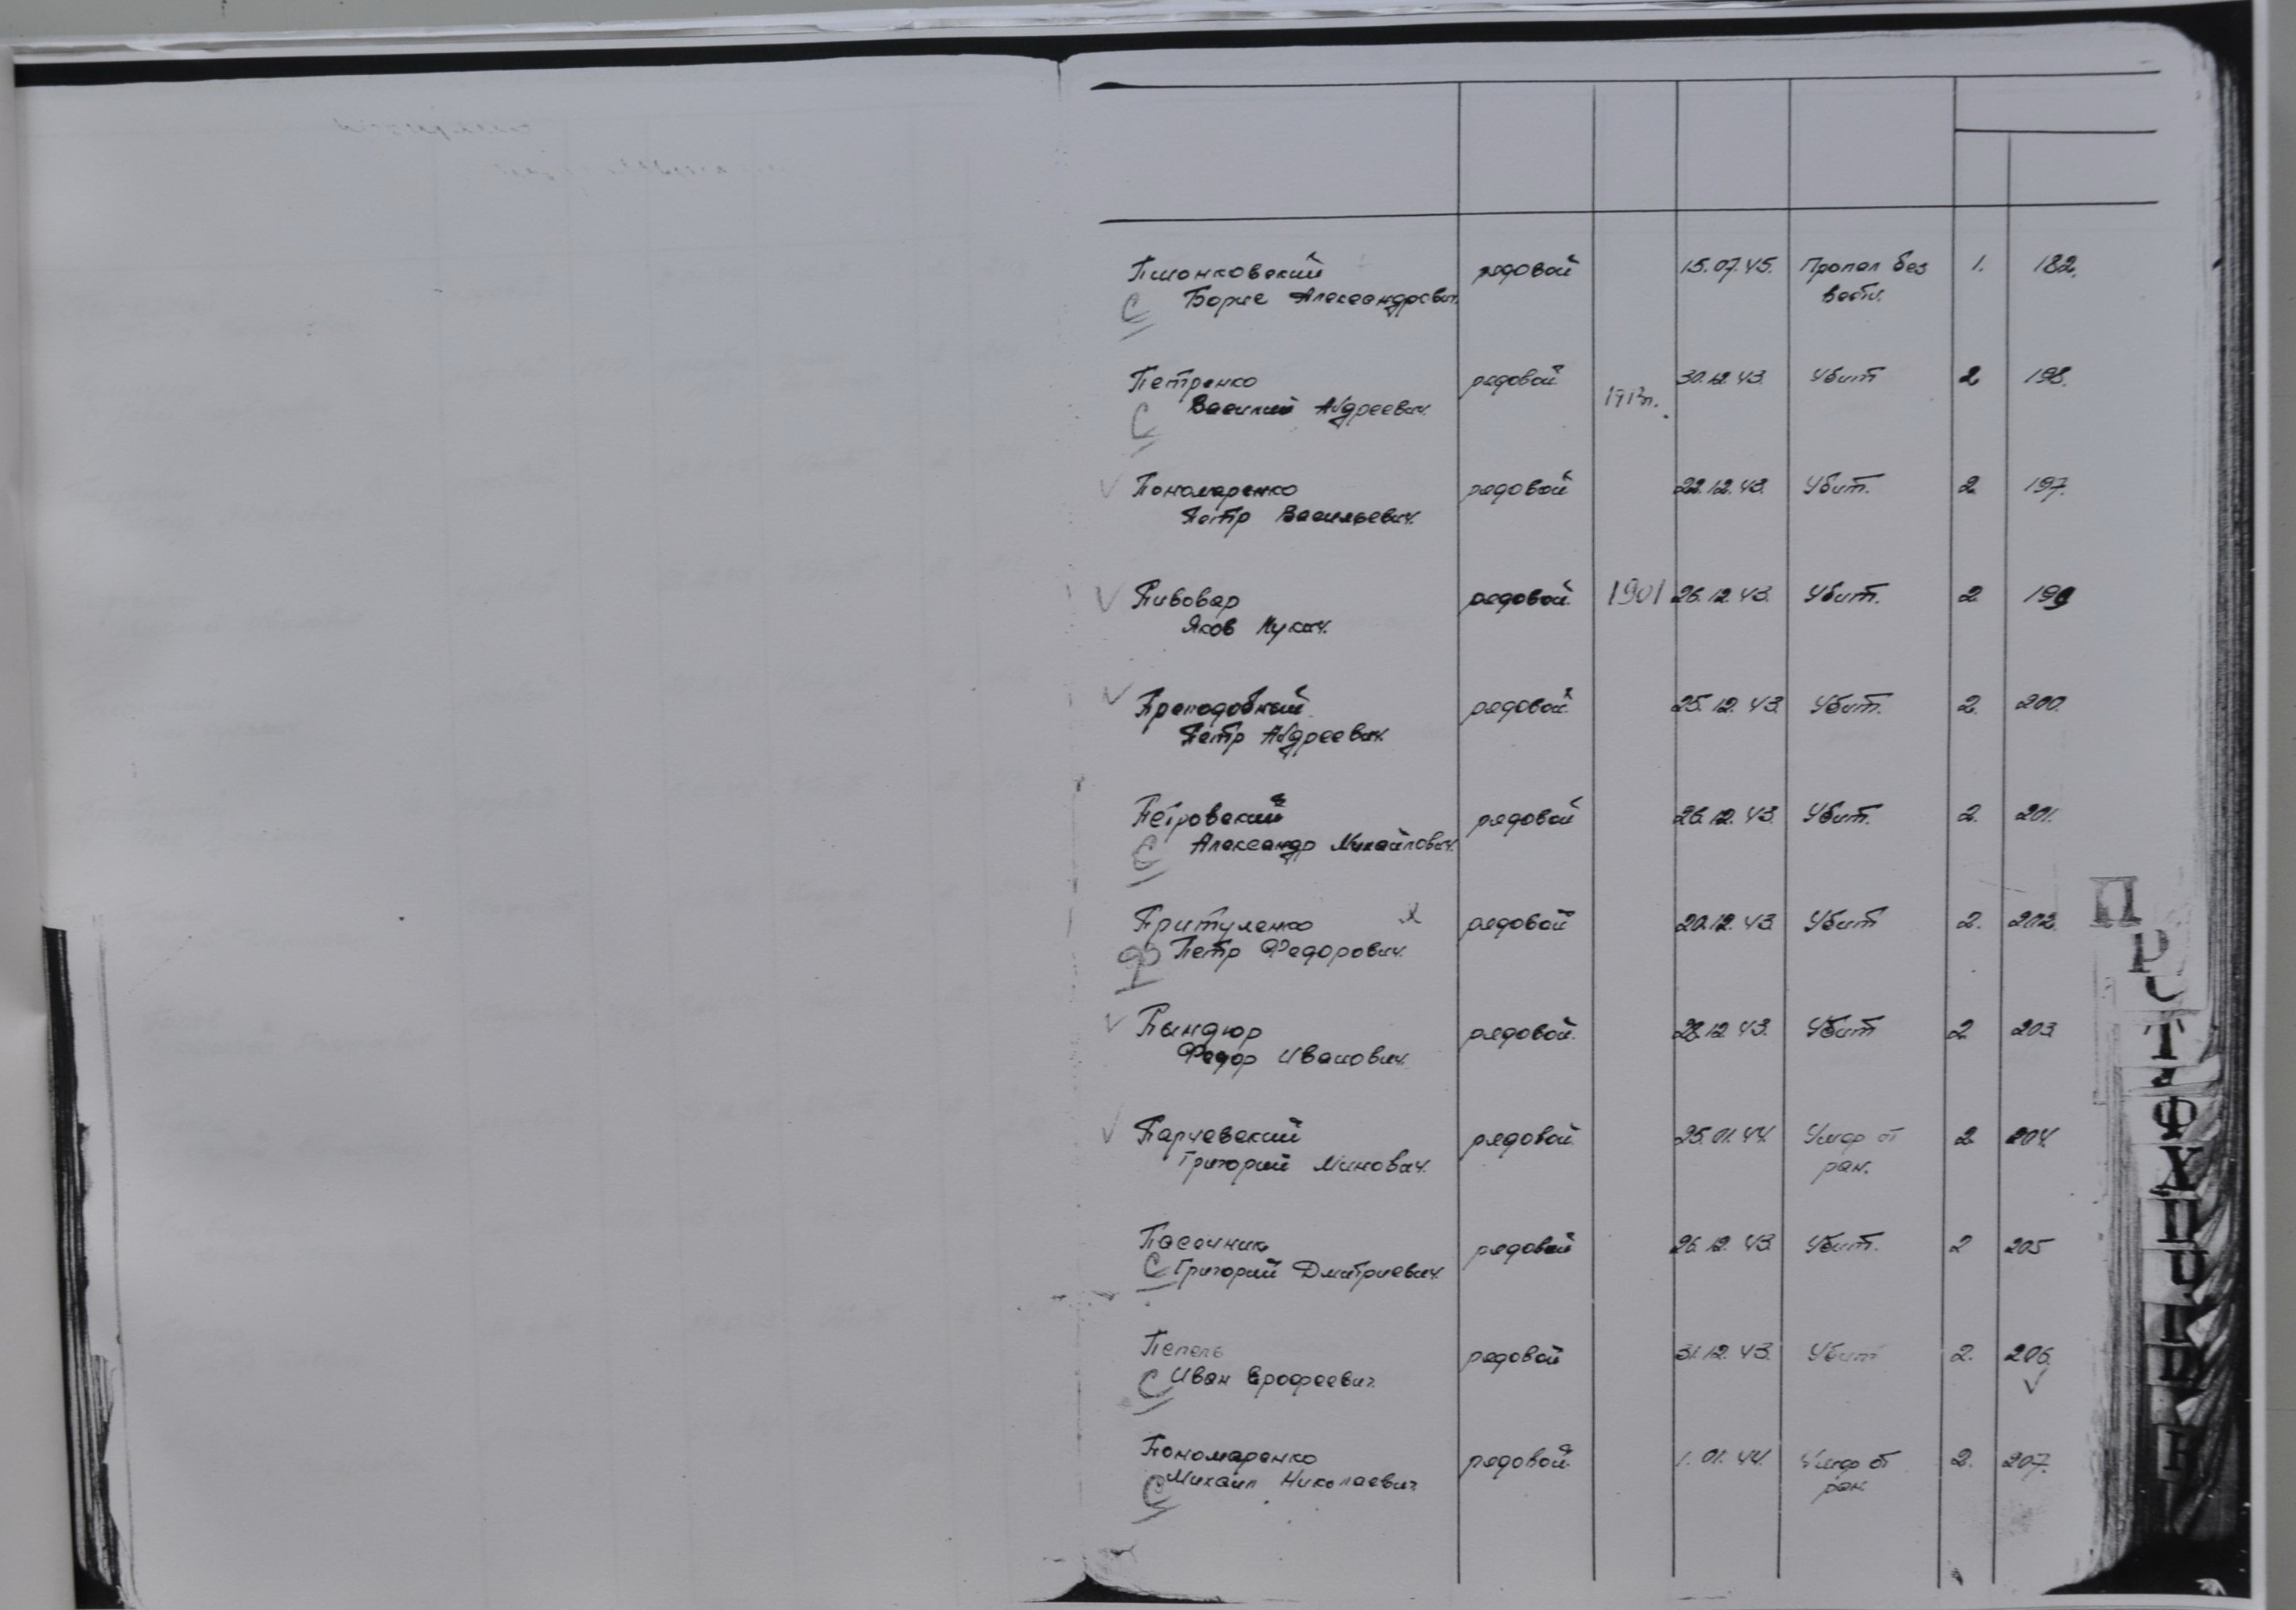 Пионковский рядовой 15.07.45. Пропал без 1. 182.
С Борис Александрович. вести.
Петренко рядовой 1913г. 30.12.43. Убит 2 198.
С Василий Андреевич.
Пономаренко рядовой 22.12.43. Убит. 2 197.
Петр Васильевич.
Пивовар рядовой. 1901 26.12.43. Убит. 2 199
Яков Лукич.
Преподобный рядовой. 25.12.43. Убит. 2. 200.
Петр Андреевич.
Петровский рядовой 26.12.43. Убит. 2. 201.
С Александр Михайлович.
Притуленко рядовой 20.12.43. Убит 2. 202.
Петр Федорович.
Пындюр рядовой. 28.12.43. Убит 2 203
Федор Иванович.
Парчевский рядовой 25.01.44. Умер от 2 204.
Григорий Минович. ран.
Пасечник рядовой 26.12.43. Убит. 2 205
С Григорий Дмитриевич.
Пепель рядовой 31.12.43. Убит 2. 206.
С Иван Ерофеевич.
Пономаренко рядовой. 1.01.44. Умер от 2. 207.
С Михаил Николаевич ран.
П
Р
С
Т
Ф
Х